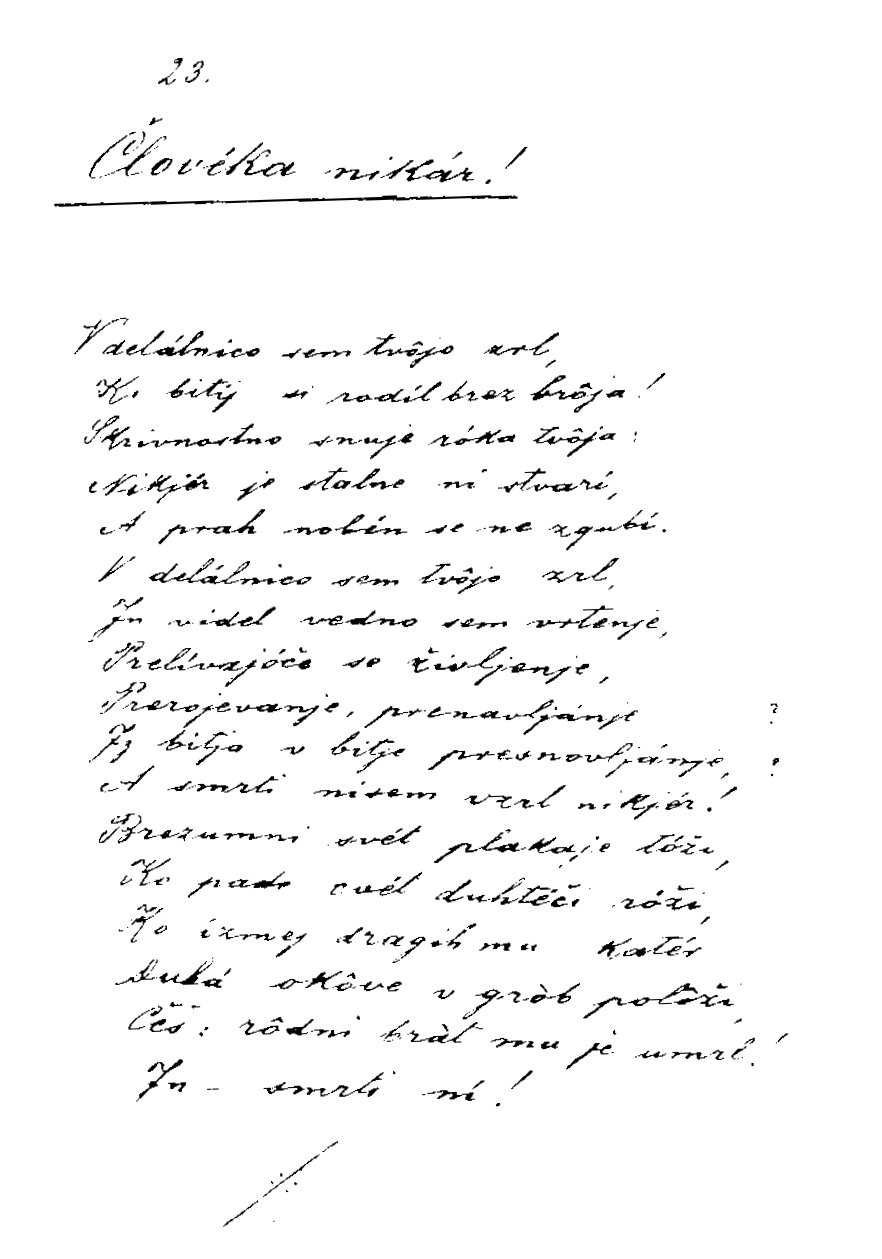 23.
Človéka nikár!
V delálnico sem tvôjo zrl,
Ki bitij si rodíl brez brôja!
Skrivnostno snuje róka tvôja:
Nikjér je stalne ni stvarí,
A prah nobén se ne zgubí.
V delálnico sem tvôjo zrl,
In videl vedno sem vrtenje,
Prelívajóče se življenje,
Prerojevanje, prenavljánje ?
Iz bitja v bitje presnovljánje, ?
A smrti nisem vzrl nikjér!
Brezumni svét plakaje tóži,
Ko pade cvét duhtéči róži,
Ko izmej dragih mu katér
Duhá okôve v gròb polôži,
Češ: rôdni bràt mu je umrl!
In - smrti ní!